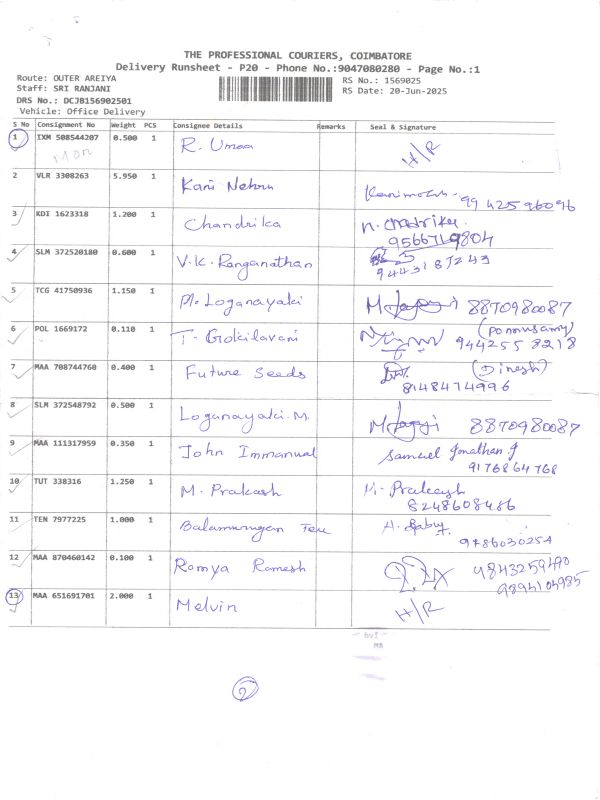 THE PROFESSIONAL COURIERS, COIMBATORE
Delivery Runsheet - P20 - Phone No.:9047080280 - Page No.:1
Route: OUTER AREIYA RS No.: 1569025
Staff: SRI RANJANI RS Date: 20-Jun-2025
DRS No.: DCJB156902501
Vehicle: Office Delivery
S No Consignment No Weight PCS Consignee Details Remarks Seal & Signature
1 IXM 508544207 0.500 1 R. Umaa H/R
Mon
2 VLR 3308263 5.950 1 Kani Nehru
99 42596096
3 KDI 1623318 1.200 1 Chandrika
9566719804
4 SLM 372520180 0.600 1 V.K. Ranganathan
5 TCG 41750936 1.150 1 Loganayaki 8870980087
6 POL 1669172 0.110 1 T. Gokilavani (Ponnusamy)
944255 8218
7 MAA 708744760 0.400 1 Future Seeds (Dinesh)
8148474996
8 SLM 372548792 0.500 1 Loganayaki. M. 8870980087
9 MAA 111317959 0.350 1 John Immanual Samuel Jonathan. J
9176864768
10 TUT 338316 1.250 1 M. Prakash M. Prakash
8248608486
11 TEN 7977225 1.000 1 Balamurugan A. Babu
9486030254
12 MAA 870460142 0.100 1 Ramya Ramesh 9843259490
9894104985
13 MAA 651691701 2.000 1 Melvin H/R